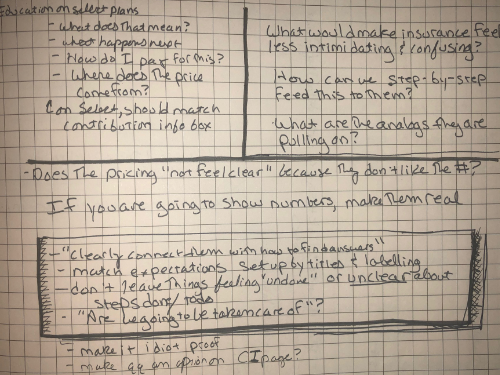 Education on select plans
- what does that mean?
- what happens next
- How do I pay for this?
- Where does the price
come from?
Con Select, should match
contribution info box
What would make insurance feel
less intimidating & confusing?
How can we step-by-step
feed this to them?
What are the analogs they are
pulling on?
- Does the pricing "not feel clear" because they don't like the #?
If you are going to show numbers, make them real
- "Clearly connect them with how to find answers"
- match expectations set up by titles & labelling
- don't leave things feeling "undone" or unclear about
steps done/todo
- "Are we going to be taken care of"?
- make it idiot proof
- make an option on CI page?